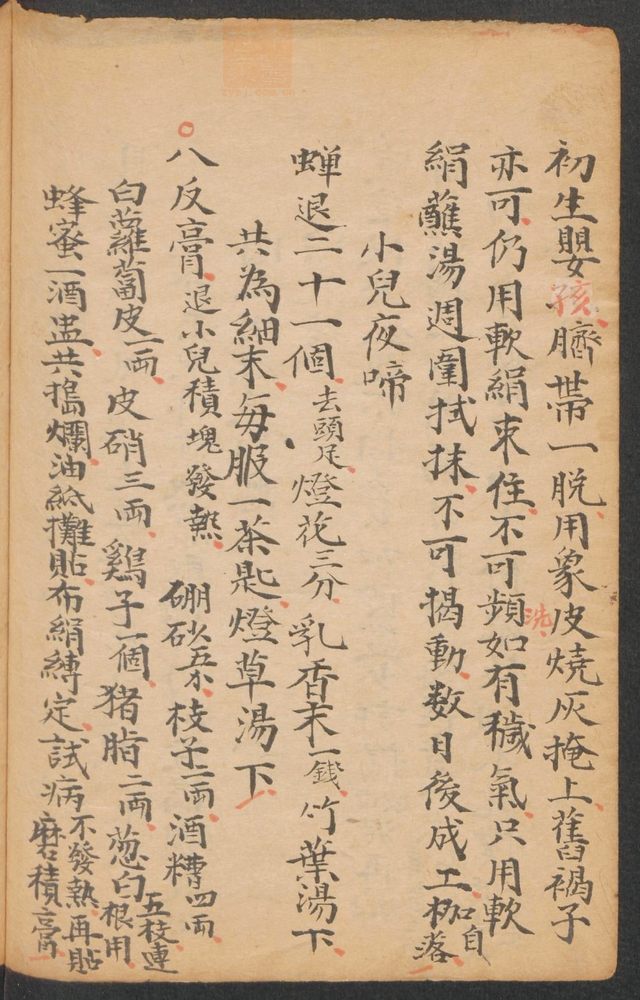 初生嬰孩臍帶一脫用象皮燒灰掩上舊褐子
亦可仍用軟絹束住不可頻洗如有穢氣只用軟
絹蘸湯週圍拭抹不可揭動数日後成工枷自落
小兒夜啼
蟬退二十一個去頭足燈花三分乳香末一錢竹葉湯下
共為細末每服一茶匙燈草湯下
八反膏退小兒積塊發熱硼砂五分枝子二両酒糟四両
白蘿蔔皮一両皮硝三両鷄子一個猪脂二両葱白五枝連根用
蜂蜜一酒盅共搗爛油紙攤貼布絹縛定試病不發熱再貼磨積膏